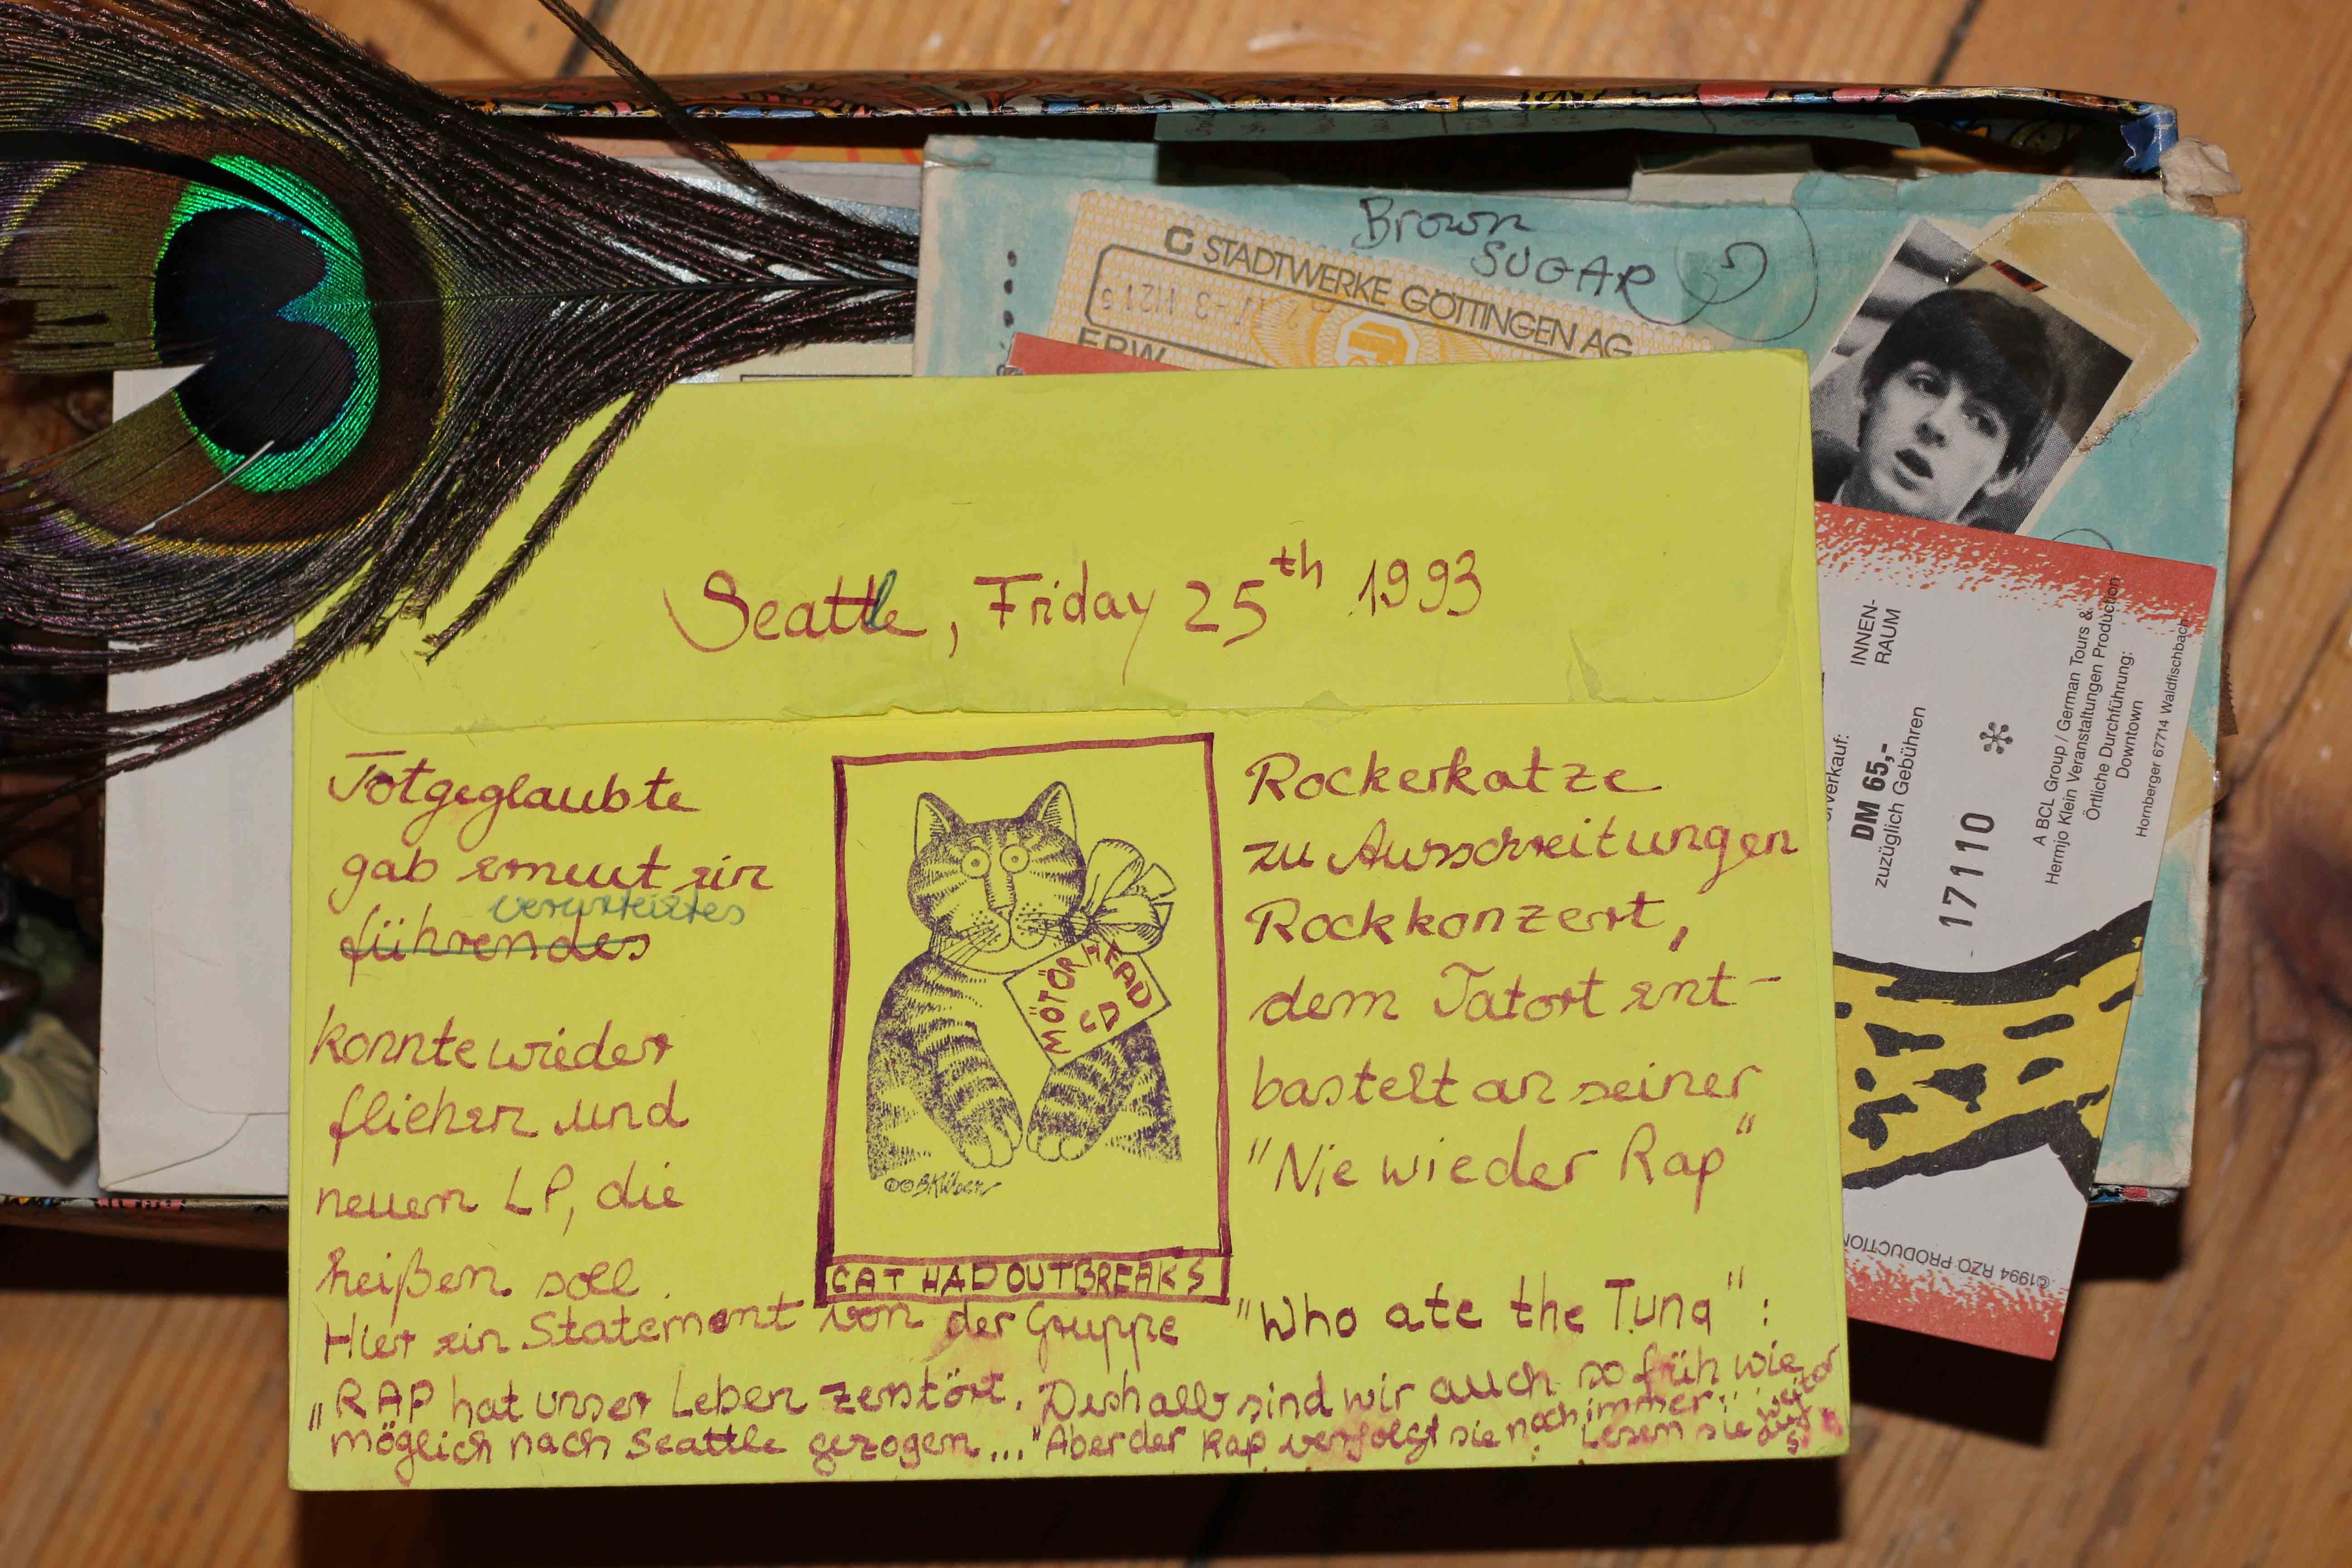 Brown
SUGAR
STADTWERKE GÖTTINGEN AG
ERW
Seattle, Friday 25th 1993
Totgeglaubte Rockerkatze
gab erneut ein zu Ausschreitungen
verursteistes
führendes Rockkonzert,
konnte wieder dem Tatort ent-
fliehen und bastelt an seiner
neuen LP, die "Nie wieder Rap"
heißen soll.
MÖTÖR HEAD
CD
CAT HAD OUTBREAKS
Hier ein Statement von der Gruppe "Who ate the Tuna":
"RAP hat unser Leben zerstört. Deshalb sind wir auch so früh wie
möglich nach Seattle gezogen..." Aber der Rap verfolgt sie noch immer: Lesen sie weiter
auf S.
INNEN-
RAUM
verkauf:
DM 65,-
zuzüglich Gebühren
17110
A BCL Group / German Tours &
Hermjo Klein Veranstaltungen Production
Örtliche Durchführung:
Downtown
Hornberger 67714 Waldfischbach
©1994 RZO PRODUCTION